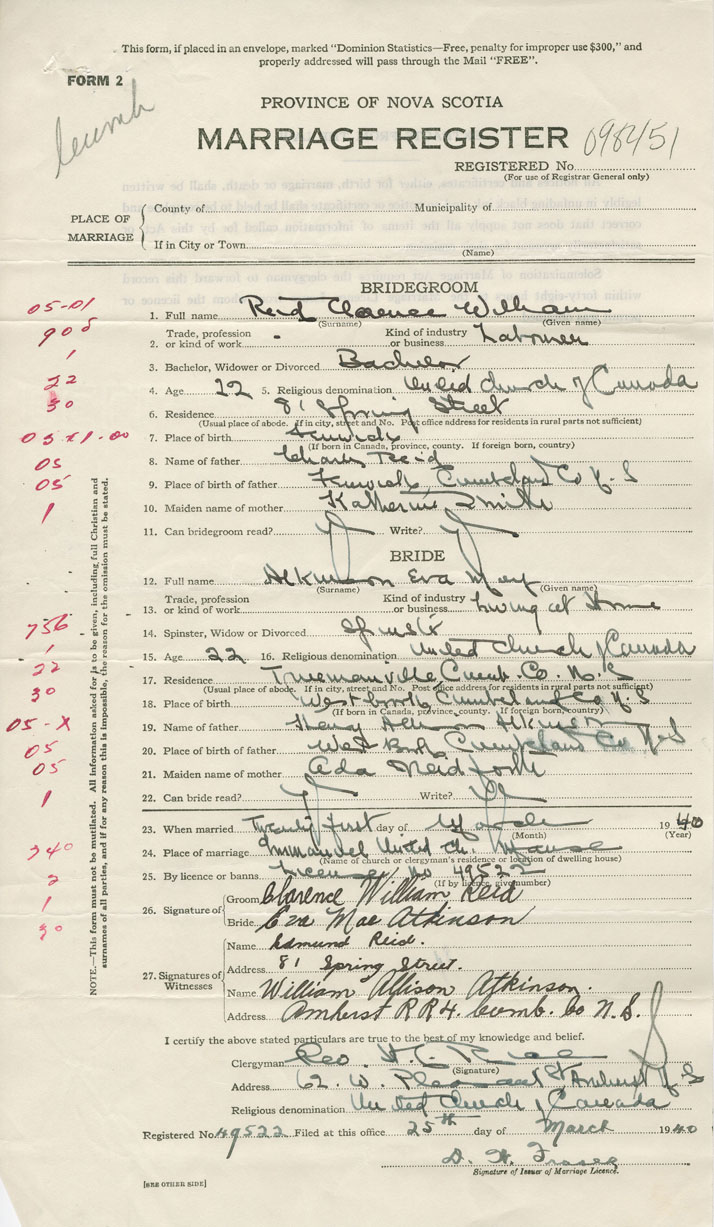 This form, if placed in an envelope, marked "Dominion Statistics—Free, penalty for improper use $300," and
properly addressed will pass through the Mail "FREE".
FORM 2
Cumb
PROVINCE OF NOVA SCOTIA
MARRIAGE REGISTER 098451
REGISTERED No
(For use of Registrar General only)
PLACE OF MARRIAGE
County of Municipality of
If in City or Town
(Name)
BRIDEGROOM
05-01
1. Full name Reid Clarence William
(Surname) (Given name)
908
2. Trade, profession or kind of work - Kind of industry or business Labourer
1
3. Bachelor, Widower or Divorced Bachelor
22
4. Age 22 5. Religious denomination United Church of Canada
30
6. Residence 81 Spring Street
(Usual place of abode. If in city, street and No. Post office address for residents in rural parts not sufficient)
05 X1-00
7. Place of birth Fenwick
(If born in Canada, province, county. If foreign born, country)
05
8. Name of father Charles Reid
05
9. Place of birth of father Fenwick, Cumberland Co N.S
1
10. Maiden name of mother Katherine Smith
11. Can bridegroom read? Y Write? Y
BRIDE
12. Full name Atkinson Eva May
(Surname) (Given name)
13. Trade, profession or kind of work Kind of industry or business Living at Home
756
14. Spinster, Widow or Divorced Spinster
1
15. Age 22 16. Religious denomination United Church of Canada
22
17. Residence Truemanville, Cumb. Co. N.S
(Usual place of abode. If in city, street and No. Post office address for residents in rural parts not sufficient)
30
18. Place of birth Westbrook, Cumberland Co N.S
(If born in Canada, province, county. If foreign born, country)
05-X
19. Name of father Atkinson
05
20. Place of birth of father West Brook Cumberland Co N.S
05
21. Maiden name of mother Ada
1
22. Can bride read? Y Write? Y
23. When married Twenty first day of March 1940
(Month) (Year)
340
24. Place of marriage Immanuel United Ch. Manse
(Name of church or clergyman's residence or location of dwelling house)
2
25. By licence or banns License No 49522
(If by licence, give number)
1
30
26. Signature of
Groom Clarence William Reid
Bride Eva Mae Atkinson
27. Signatures of Witnesses
Name Edmund Reid.
Address 81 Spring Street.
Name William Allison Atkinson.
Address Amherst R R 4. Cumb. Co N.S.
I certify the above stated particulars are true to the best of my knowledge and belief.
Clergyman
(Signature)
Address 62. W. Pleasant St, Amherst N.S
Religious denomination United Church of Canada
Registered No. 49522 Filed at this office 25th day of March 1940
D. H. Fraser
Signature of Issuer of Marriage Licence.
[SEE OTHER SIDE]
NOTE.—This form must not be mutilated. All information asked for is to be given, including full Christian and
surnames of all parties, and if for any reason this is impossible, the reason for the omission must be stated.